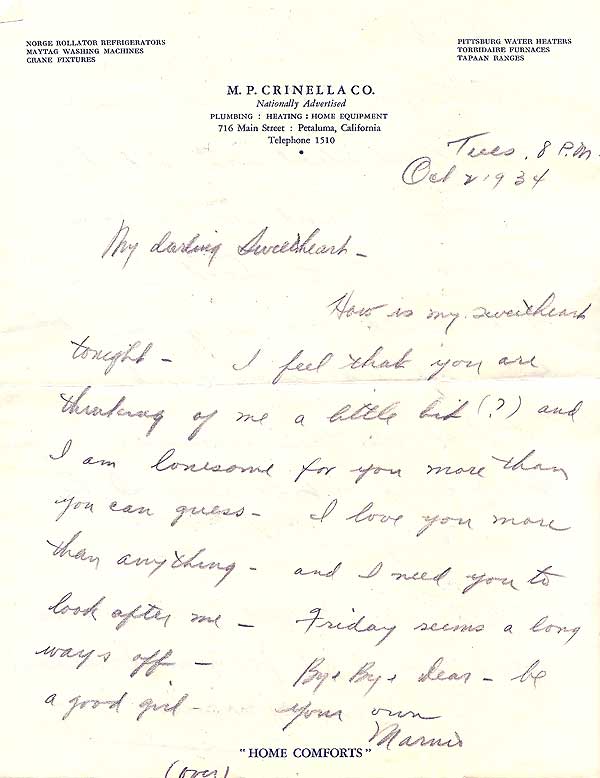 NORGE ROLLATOR REFRIGERATORS
MAYTAG WASHING MACHINES
CRANE FIXTURES
PITTSBURG WATER HEATERS
TORRIDAIRE FURNACES
TAPAAN RANGES
M. P. CRINELLA CO.
Nationally Advertised
PLUMBING : HEATING : HOME EQUIPMENT
716 Main Street : Petaluma, California
Telephone 1510
Tues. 8 P.M.
Oct 2 1934
My darling Sweetheart -
How is my sweetheart
tonight - I feel that you are
thinking of me a little bit (?) and
I am lonesome for you more than
you can guess - I love you more
than anything - and I need you to
look after me - Friday seems a long
ways off - Bye Bye dear - be
a good girl - your own
"HOME COMFORTS"
(over)